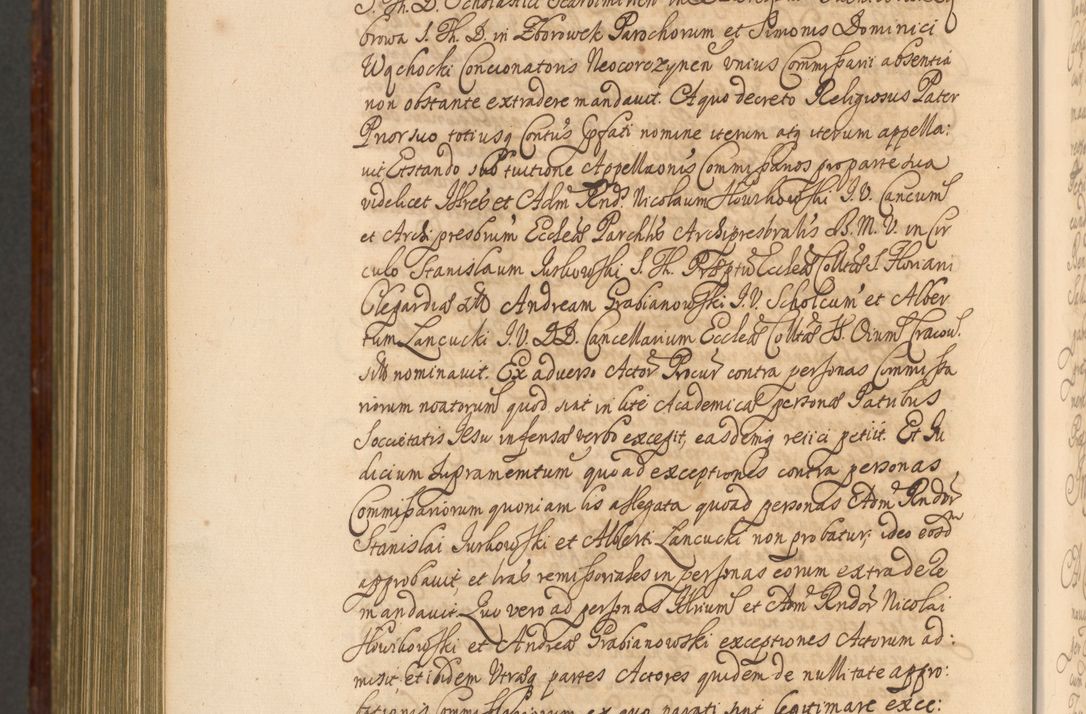 S. Th. D. Scholastici
browa S. Th. D. in Zborowek Parochorum et Simonis Dominici
Wąchocki Concionatoris Neocorczynen unius Commissarii absentia
non obstante extradere mandavit. A quo decreto Religiosus Pater
Prior suo totiusq Contus spfati nomine iterum atq iterum appella:
vit Et stando sub tuitione Appellaonis Commissarios pro parte sua
videlicet Illres et Adm Rnd. Nicolaum Howikowski I. V. Cancum
et Archipresbrum Ecclea Parchlis Archipresbralis B. M. V. in Cir
culo Stanislaum Jurkowski S. Th. Ecclea Colltae S Floriani
Clepardiae Andream Grabianowski I. V. Scholcum et Alber
tum Lancucki I. V. DD. Cancellarium Ecclea Colltae SS. Oium Cracov.
nominavit. Ex adverso Actor Procur contra personas Commissa
riorum noatorum quod sint in lite Academica personae Patribus
Societatis Jesu infensae verbo excepit, easdemq reiici petiit. Et Ju
dicium supramemtum quo ad exceptiones contra personas
Commissariorum quoniam lis allegata quoad personas Adm Rndor
Stanislai Jurkowski et Alberti Lancucki non probatur, ideo eosd
approbavit, et lras remissoriales in personas eorum extradere
mandavit. Quo vero ad personas Illrium et Adm Rndor Nicolai
Howikowski et Andreae Grabianowski exceptiones Actorum ad:
misit, et ibidem Utraq partes Actores quidem de nullitate appro:
bationis Commissariorum ex quo parati sint legitimare exce: